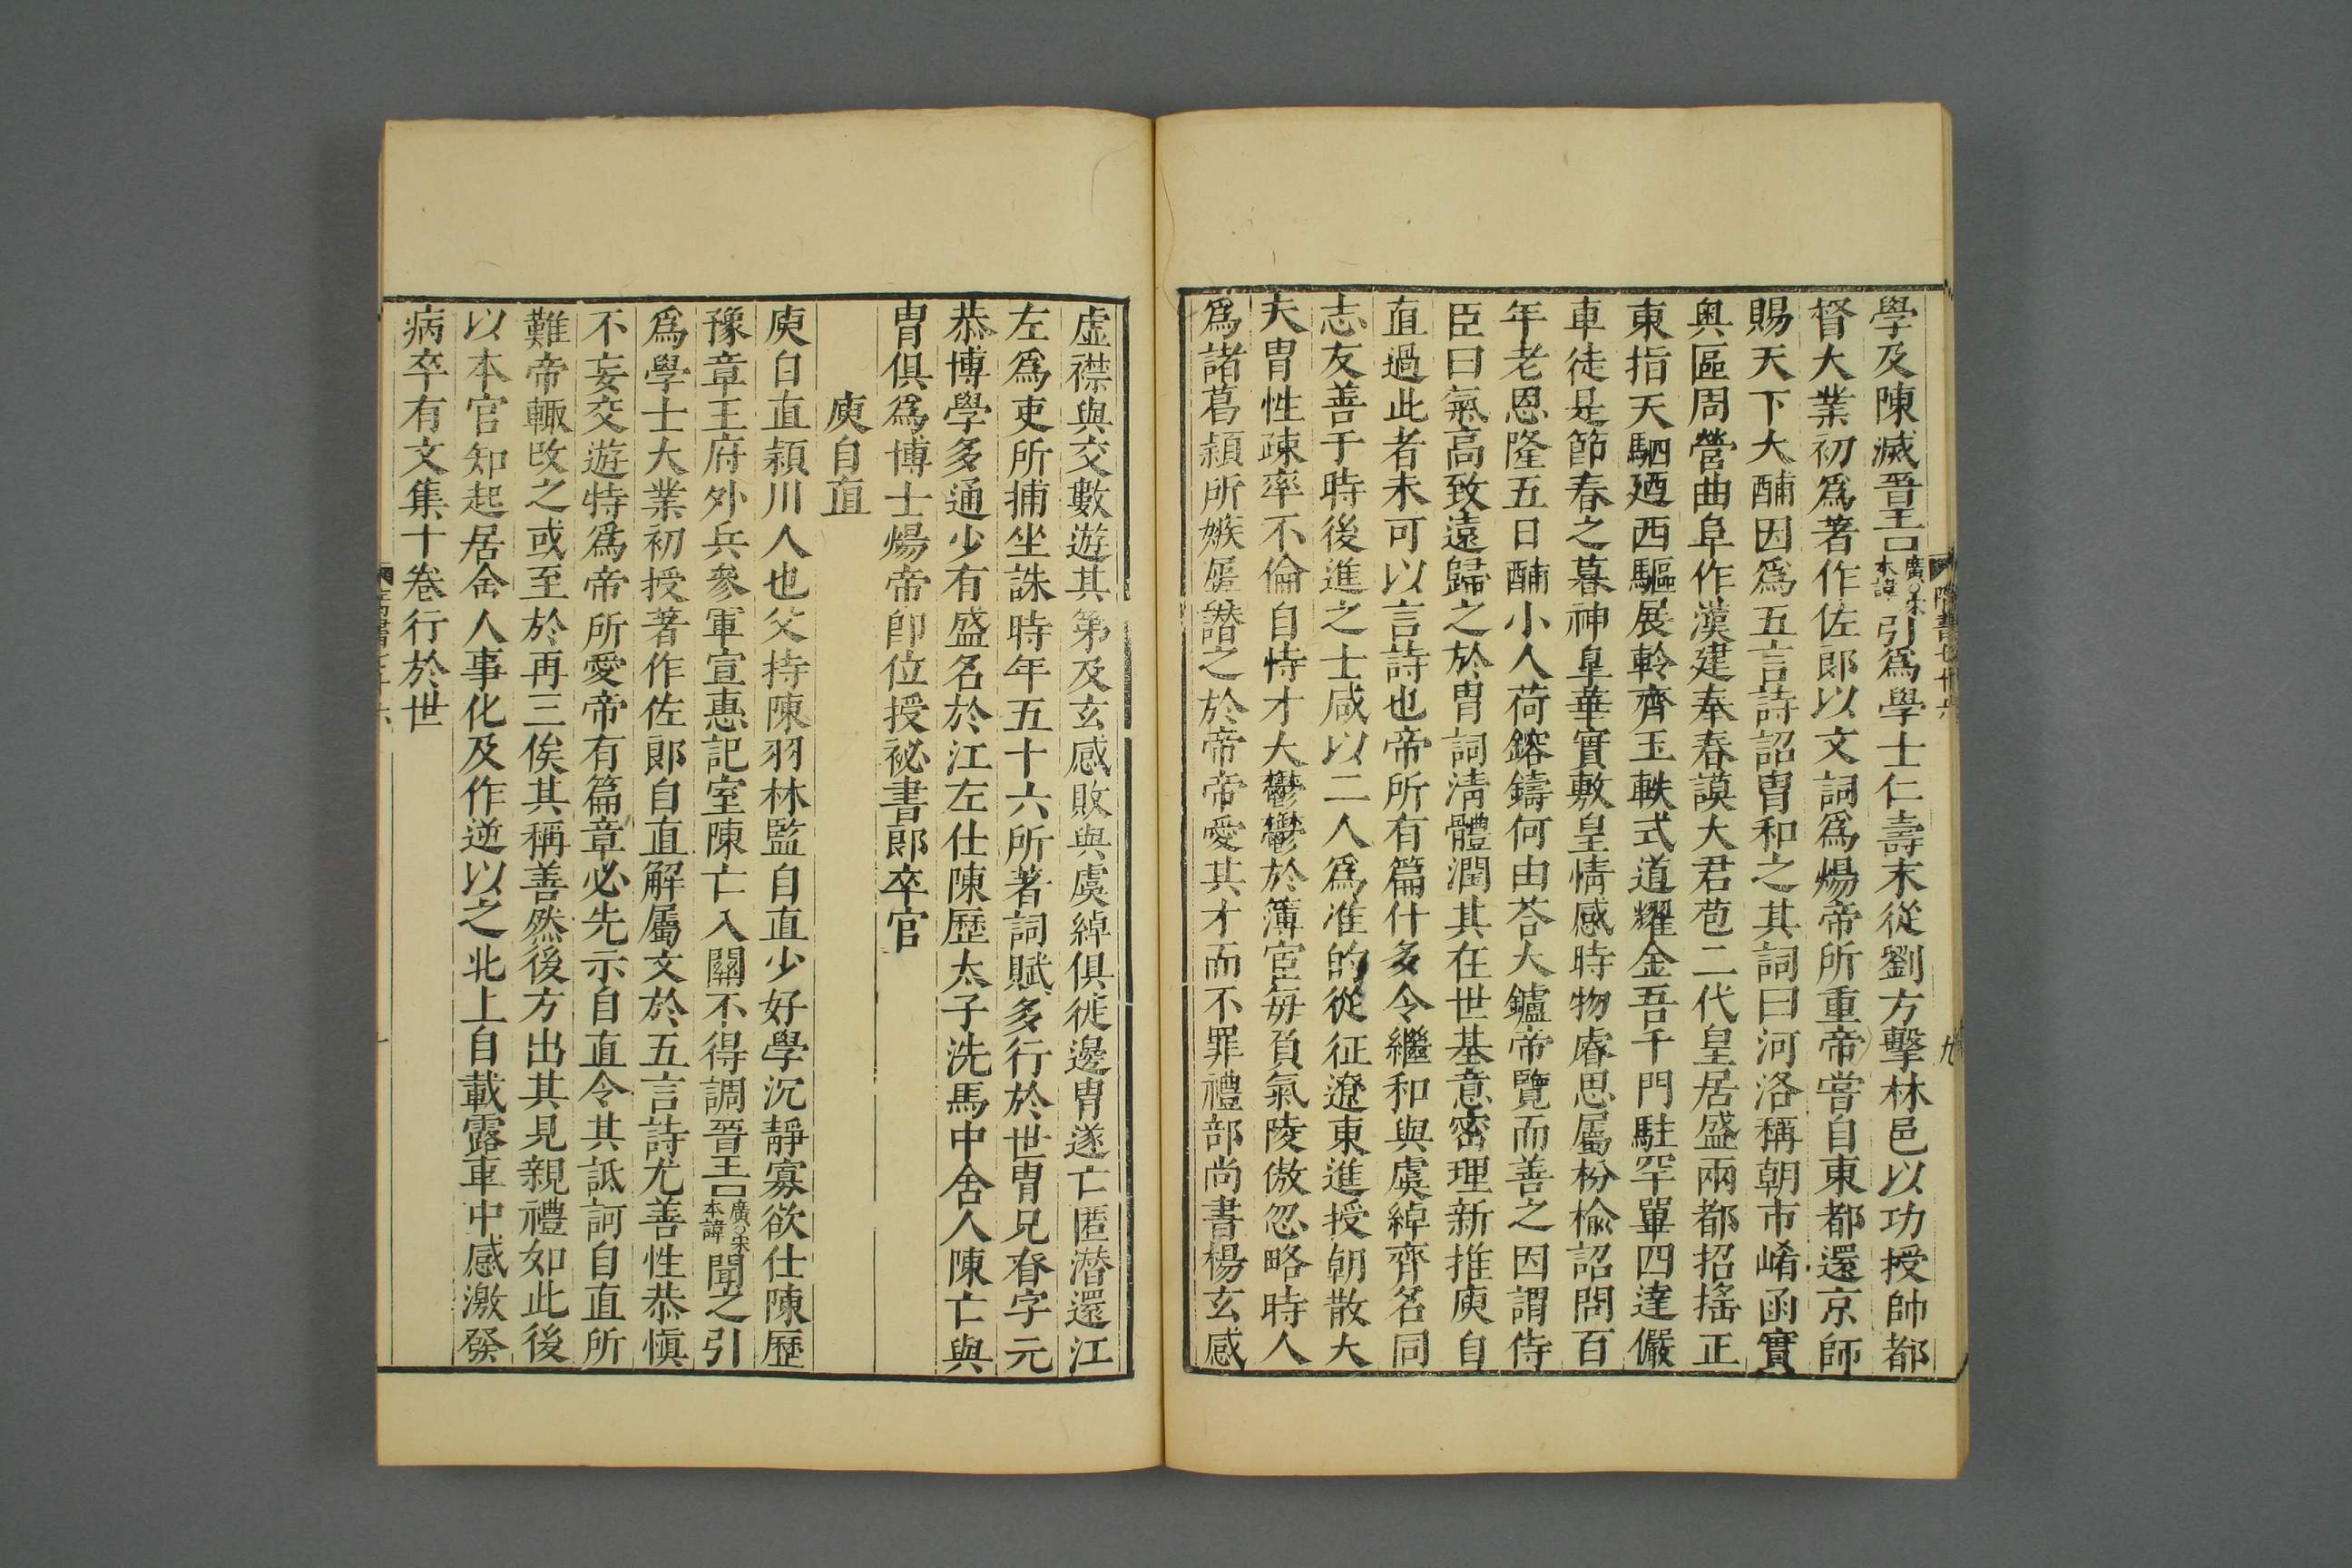 學及陳滅晉王口廣宋本諱引爲學士仁壽末從劉方擊林邑以功授帥都
督大業初爲著作佐郎以文詞爲煬帝所重帝嘗自東都還京師
賜天下大酺因爲五言詩詔冑和之其詞曰河洛稱朝市崤函實
奥區周營曲阜作漢建奉春謨大君苞二代皇居盛兩都招搖正
東指天駟廼西驅展軨齊玉軑式道耀金吾千門駐罕罼四達儼
車徒是節春之暮神臯華實敷皇情感時物睿思屬枌榆詔問百
年老恩隆五日酺小人荷鎔鑄何由荅大鑪帝覽而善之因謂侍
臣曰氣高致遠歸之於冑詞清體潤其在世基意密理新推庾自
直過此者未可以言詩也帝所有篇什多令繼和與虞綽齊名同
志友善于時後進之士咸以二人爲准的從征遼東進授朝散大
夫冑性疎率不倫自恃才大鬱鬱於薄宦每負氣陵傲忽略時人
爲諸葛潁所嫉屢譖之於帝帝愛其才而不罪禮部尚書楊玄感
虛襟與交數遊其第及玄感敗與虞綽俱徙邊冑遂亡匿潛還江
左爲吏所捕坐誅時年五十六所著詞賦多行於世冑兄眘字元
恭博學多通少有盛名於江左仕陳歷太子洗馬中舍人陳亡與
冑俱爲博士煬帝即位授祕書郎卒官
庾自直
庾自直潁川人也父持陳羽林監自直少好學沉靜寡欲仕陳歷
豫章王府外兵參軍宣惠記室陳亡入關不得調晉王口廣宋本諱聞之引
爲學士大業初授著作佐郎自直解屬文於五言詩尤善性恭慎
不妄交遊特爲帝所愛帝有篇章必先示自直令其詆訶自直所
難帝輙改之或至於再三俟其稱善然後方出其見親禮如此後
以本官知起居舍人事化及作逆以之北上自載露車中感激發
病卒有文集十卷行於世
隋書七十六
九